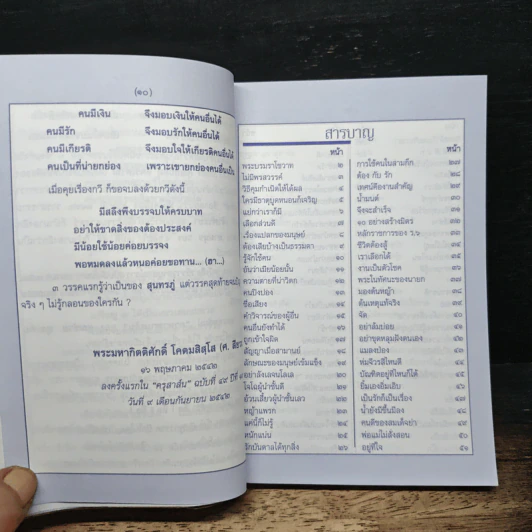 (๑๐)
คนมีเงิน จึงมอบเงินให้คนอื่นได้
คนมีรัก จึงมอบรักให้คนอื่นได้
คนมีเกียรติ จึงมอบใจให้เกียรติคนอื่นได้
คนเป็นที่น่ายกย่อง เพราะเขายกย่องคนอื่นเป็น
เมื่อคุยเรื่องกวี ก็ขอจบลงด้วยบทวีดังนี้
มีสลึงพึงบรรจบให้ครบบาท
อย่าให้ขาดสิ่งของต้องประสงค์
มีน้อยใช้น้อยค่อยบรรจง
พอหมดลงแล้วหนอค่อยขอทาน... (ฮา...)
๓ วรรคแรกรู้ว่าเป็นของ สุนทรภู่ แต่วรรคสุดท้าย
จริง ๆ ไม่รู้กลอนของใครกัน ?
พระมหากิตติศักดิ์ โคตมสิสฺโส
๑๖ พฤษภาคม ๒๕๔๒
ลงครั้งแรกใน "ครุสาส์น" ฉบับที่ ๔๙
วันที่ ๙ เดือนกันยายน ๒๕๔๒
สารบาญ
หน้า
พระบรมราโชวาท ๒
ไม่มีพรสวรรค์ ๓
วิธีคุมกำเนิดให้ได้ผล ๔
ใครมีธาตุบูดหนอนก็เจริญ ๕
แย่กว่าเราก็มี ๖
เลือกส่วนดี ๗
เรื่องแปลกของมนุษย์ ๘
ต้องเสียบ้างเป็นธรรมดา ๙
รู้จักใช้คน ๑๐
ฉันว่าเมียน้อยนั้น ๑๑
ความตายที่น่าวิตก ๑๒
คนปิ้งปอง ๑๓
ชื่อเสียง ๑๔
คำวิจารณ์ของผู้อื่น ๑๕
คนอื่นยังทำได้ ๑๖
ถูกเข้าใจผิด ๑๗
สัญญาเมื่อสามานย์ ๑๘
ลักษณะของมนุษย์เข้มแข็ง ๑๙
อย่าลังเลจนโลเล ๒๐
ใจโอผู้นำชั้นดี ๒๑
ส้วนเสี้ยวผู้นำชั้นเลว ๒๒
หญ้าแพรก ๒๓
แค่นี้ก็ไม่รู้ ๒๔
หนักแน่น ๒๕
รักบันดาลได้ทุกสิ่ง ๒๖
หน้า
การใช้คนในสามก๊ก ๒๗
ต้อง กับ รัก ๒๘
เทคนิคือ งานสำคัญ ๒๙
น้ำมนต์ ๓๐
จึงจะสำเร็จ ๓๑
๑๐ อย่างสร้างมิตร ๓๒
หลักราชการของ ร.๖ ๓๓
ชีวิตต้องสู้ ๓๔
เราเลือกได้ ๓๕
งานเป็นตัวโชค ๓๖
พระในทัศนะของนายก ๓๗
มองต้นหญ้า ๓๘
ต้นเหตุแท้จริง ๓๙
จัด ๔๐
อย่าล้มบ่อย ๔๑
อย่าขุดหลุมฝังตนเอง ๔๒
แมลงป่อง ๔๓
พ่นพิวรสีไหนดี ๔๔
บัณฑิตอยู่ที่ไหนก็ได้ ๔๕
ยิ้มเองอิ่มเอิบ ๔๖
เป็นรักก็เป็นเรื่อง ๔๗
น้ำยังมีขึ้นมีลง ๔๘
คนดีของสมเด็จย่า ๔๙
พ่อแม่ไม่สั่งสอน ๕๐
อยู่ที่ใจ ๕๑